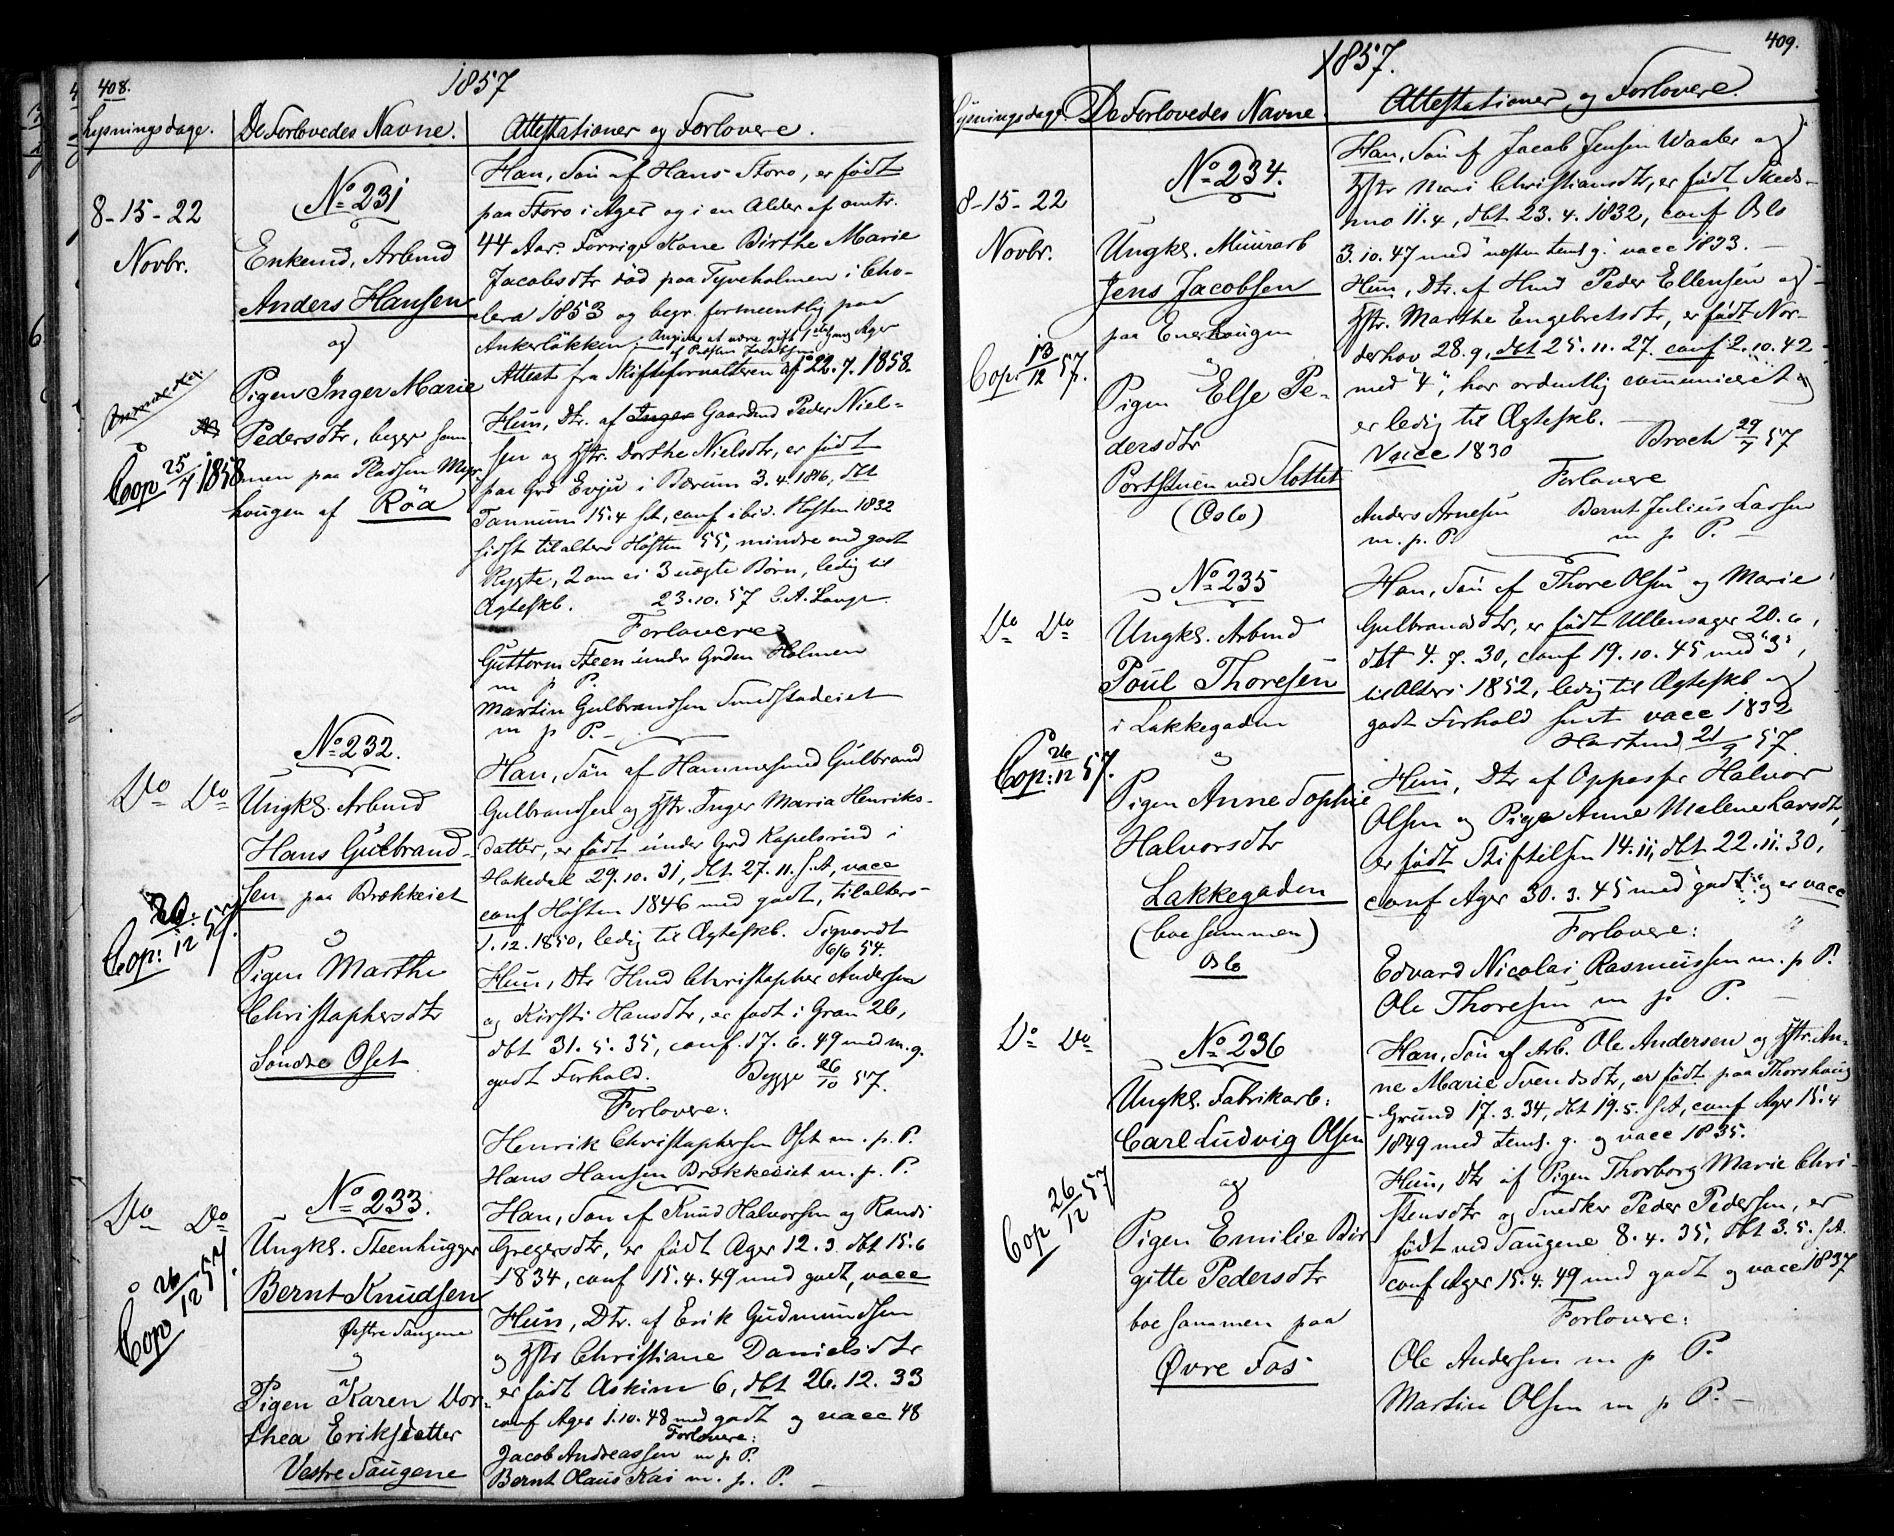 408.
1857
Lysningsdage.
De Forlovedes Navne.
Attestationer og Forlovere.
8-15-22
Novbr.
No 231
Enkemd, Arbmd
Anders Hansen
og
Pigen Inger Marie
Pedersdtr, begge sam
men paa Pladsen Myr
hougen af Røa
Cop 25/7 1858
Han, Søn af Hans Storo, er født
paa Storo i Ager og i en Alder af omtr.
44 Aar. Forrige Kone Birthe Marie
Jacobsdtr død paa Tyveholmen i Cho-
lera 1853 og begr. formeentlig paa
Ankerløkken. Angiver at være gift 1ste Gang Ager
af Præsten Jacobsen
Attest fra Skifteforvalteren af 22.7.1858.
Hun, Dtr. af Inger Gaardmd Peder Niel-
sen og Hstr. Dorthe Nielsdtr, er født
paa Grd Evju i Bærum 3.4.1816, dbt
Tannum 15.4 s.A, conf ibid. Høsten 1832
sidst tilalters Høsten 55, mindre end godt
Rygte, 2 om ei 3 uægte Børn, ledig til
Ægteskb. 23.10.57 C.A. Lange.
Forlovere
Guttorm Steen under Grden Holmen
m p P.
Martin Gulbrandsen Sundstadeiet
m p P.
No 232.
Do Do
Ungkl. Arbmd
Hans Gulbrand-
sen paa Brækkeiet
og
Pigen Marthe
Christophersdtr
Søndre Oset
Cop: 26/12 57.
Han, Søn af Hammersmed Gulbrand
Gulbrandsen og Hstr. Inger Maria Henriks-
datter, er født under Grd Kapelsrud i
Hakedal 29.10.31, dbt 27.11. s.A, vacc
conf Høsten 1846 med godt, tilalters
1.12.1850, ledig til Ægteskb. Sigvardt
6/6 54.
Hun, Dtr Hmd Christopher Andersen
og Kirsti Hansdtr, er født i Gran 26,
dbt 31.5.35, conf. 17.6.49 med m.g.
godt Forhold. Bugge 26/10 57.
Forlovere:
Henrik Christophersen Oset m.p.P.
Hans Hansen Brækkeeiet m.p.P.
No 233.
Do Do
Ungkl. Steenhugger
Bernt Knudsen
Østre Saugene
og
Pigen Karen Dor-
thea Eriksdatter
Vestre Saugene
Cop 26/12 57.
Han, Søn af Knud Halvorsen og Randi
Gregersdtr, er født Ager 12.3. dbt 15.6
1834, conf 15.4.49 med godt, vacc
Hun, Dtr. af Erik Gudmundsen
og Hstr Christiane Danielsdtr
er født Askim 6, dbt 26.12.33
conf Ager 1.10.48 med godt og vacc 48
Forlovere:
Jacob Andreassen m p P.
Bernt Olaus Kai m. p. P.
409.
1857.
Lysningsdage.
De Forlovedes Navne.
Attestationer og Forlovere.
8-15-22
Novbr.
No 234.
Ungkl. Muurarb
Jens Jacobsen
paa Enerhougen
og
Pigen Else Pe-
dersdtr
Portstuen ved Slottet
(Oslo)
Cop. 13/12 57.
Han, Søn af Jacob Jensen Waaler og
Hstr Mari Christiansdtr, er født Skeds-
mo 11.4, dbt 23.4.1832, conf Oslo
3.10.47 med "næsten tems g." vacc 1833.
Hun, Dtr. af Hmd Peder Ellensen og
Hstr. Marthe Engebretsdtr, er født Nor-
derhov 28.9, dbt 25.11.27. conf 2.10.42
med "4", har ordentlig communiceret og
er ledig til Ægteskb.
Vacc 1830 Broch 29/7 57
Forlovere
Anders Arnesen Bernt Julius Larsen
m. p. P. m p P.
No 235
Do Do
Ungkl. Arbmd
Poul Thoresen
i Lakkegaden
og
Pigen Anne Sophie
Halvorsdtr
Lakkegaden
(boe sammen)
Oslo
Cop: 26/12 57.
Han, Søn af Thore Olsen og Marie
Gulbrandsdtr, er født Ullensager 20.6,
dbt 4.7.30, conf 19.10.45 med "3",
til Alters 1852, ledig til Ægteskb og
godt Forhold samt vacc 1832
21/9 57.
Hun, Dtr af Oppasser Halvor
Olsen og Pige Anne Malene Larsdtr,
er født Stiftelsen 14.11, dbt 22.11.30,
conf Ager 30.3.45 med "godt" og er vacc
Forlovere:
Edvard Nicolai Rasmussen m. p P.
Ole Thoresen m p P.
No 236
Do Do
Ungkl. Fabrikarb:
Carl Ludvig Olsen
og
Pigen Emilie Bir-
gitte Pedersdtr
boe sammen paa
Øvre Fos
Cop 26/12 57
Han, Søn af Arb. Ole Andersen og Hstr. An-
ne Marie Svendsdtr, er født paa Thorshaug
Grund 17.3.34, dbt 19.5. s.A, conf Ager 15.4
1849 med tems. g. og vacc 1835.
Hun, Dtr af Pigen Thorborg Marie Chri-
stensdtr og Snedker Peder Pedersen, er
født ved Saugene 8.4.35, dbt 3.5. s.A.
conf Ager 15.4.49 med godt og vacc 1837
Forlovere:
Ole Andersen m p P.
Martin Olsen m p P.